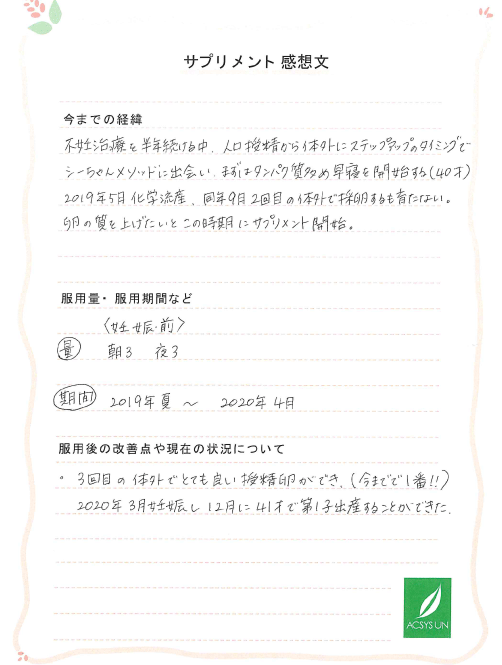 サプリメント 感想文
今までの経緯
不妊治療を半年続ける中、人口授精から体外にステップアップのタイミングで
シーちゃんメソッドに出会い、まずはタンパク質多め早寝を開始する(40才)
2019年5月化学流産、同年9月2回目の体外で採卵するも育たない。
卵の質を上げたいとこの時期にサプリメント開始。
服用量・服用期間など
〈妊娠前〉
量 朝3 夜3
期間 2019年夏 〜 2020年4月
服用後の改善点や現在の状況について
・3回目の体外でとても良い授精卵ができ、(今までで1番!!)
2020年3月妊娠し12月に41才で第1子出産することができた。
ACSYS UN